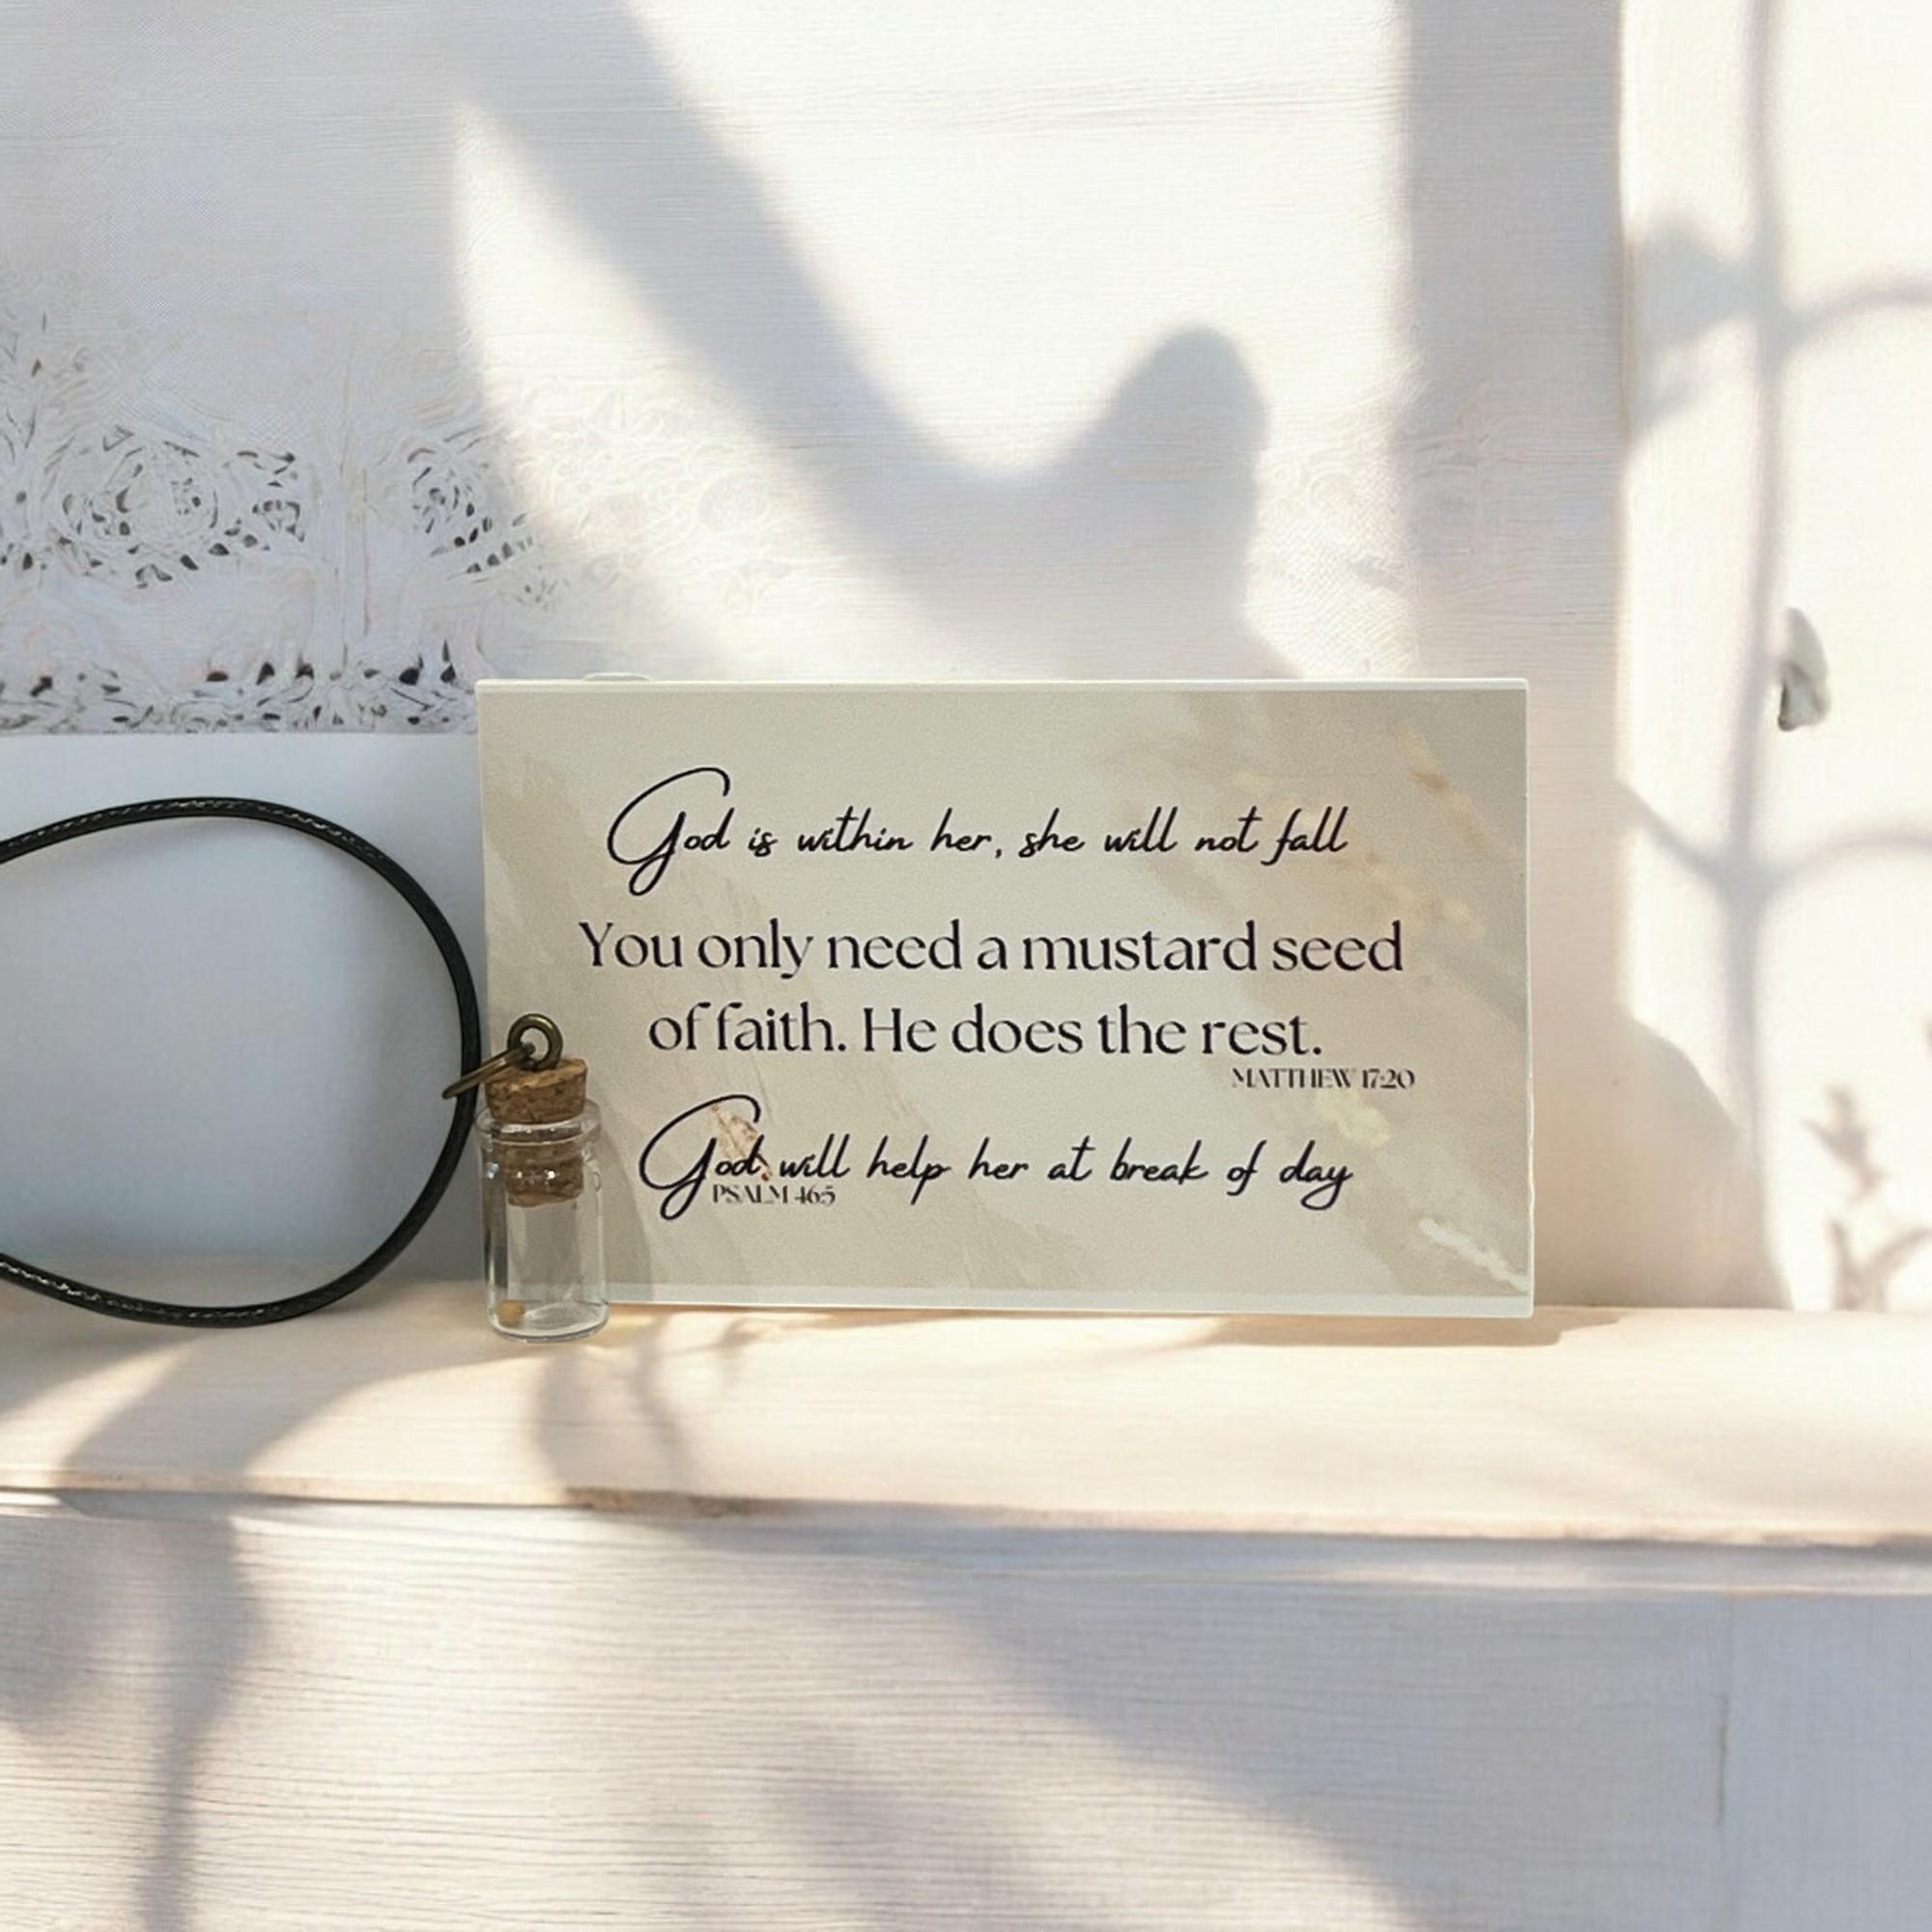 God is within her, she will not fall
You only need a mustard seed
of faith. He does the rest.
MATTHEW 17:20
God will help her at break of day
PSALM 46:5